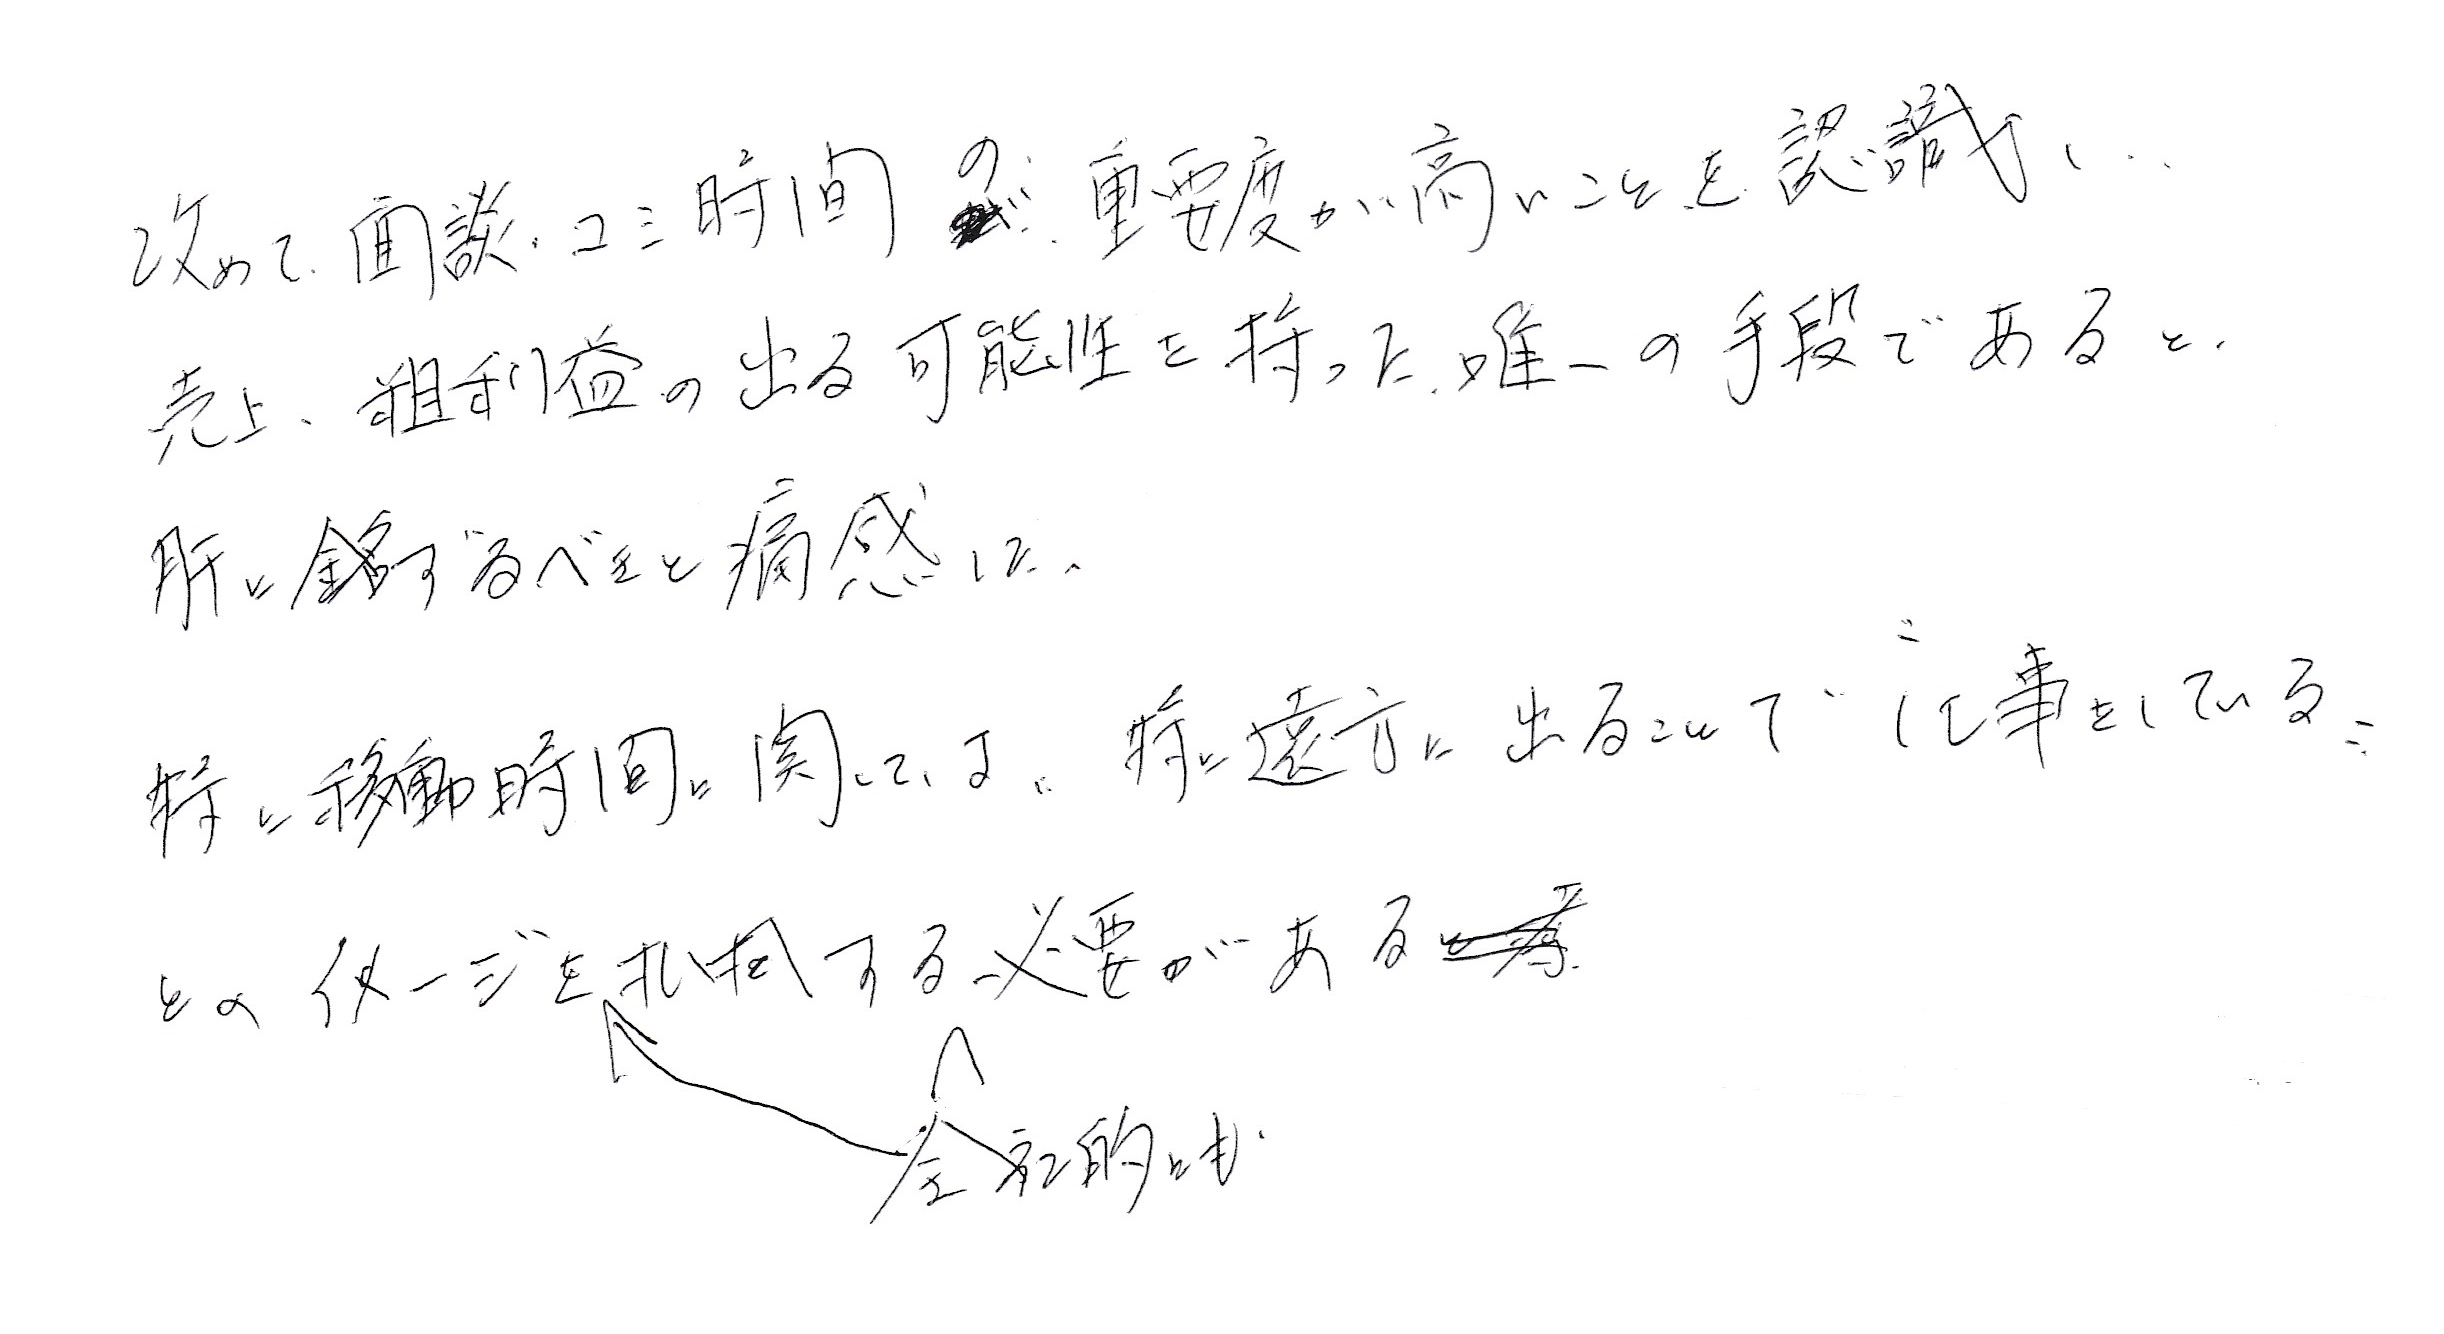 改めて、面談・コミ時間の重要度が高いことを認識し、
売上、粗利益の出る可能性を持った唯一の手段であると、
肝に銘ずるべきと痛感した。
特に移動時間に関しては、特に遠方に出ることで仕事をしている
とのイメージを払拭する必要がある
全社的にも